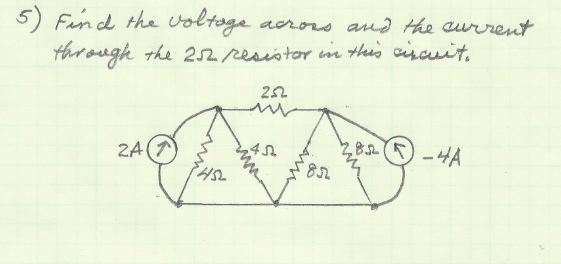 5) Find the voltage across and the current
through the 2Ω resistor in this circuit.
2Ω
2A
4Ω
4Ω
8Ω
8Ω
-4A